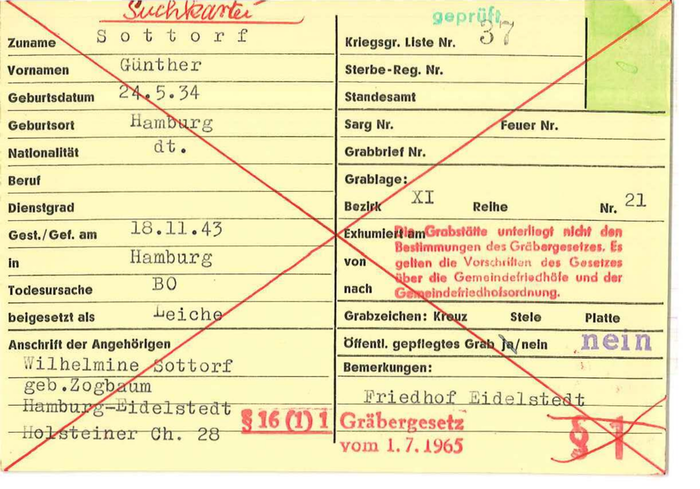 Suchkartei
geprüft
Zuname Sottorf
Vornamen Günther
Geburtsdatum 24.5.34
Geburtsort Hamburg
Nationalität dt.
Beruf
Dienstgrad
Gest./Gef. am 18.11.43
in Hamburg
Todesursache BO
beigesetzt als Leiche
Anschrift der Angehörigen
Wilhelmine Sottorf
geb.Zogbaum
Hamburg-Eidelstedt
Holsteiner Ch. 28
Kriegsgr. Liste Nr. 37
Sterbe-Reg. Nr.
Standesamt
Sarg Nr. Feuer Nr.
Grabbrief Nr.
Grablage:
Bezirk XI Reihe Nr. 21
Exhumiert am
von
nach
Die Grabstätte unterliegt nicht den
Bestimmungen des Gräbergesetzes. Es
gelten die Vorschriften des Gesetzes
über die Gemeindefriedhöfe und der
Gemeindefriedhofsordnung.
Grabzeichen: Kreuz Stele Platte
Öffentl. gepflegtes Grab ja/nein nein
Bemerkungen:
Friedhof Eidelstedt
§ 16 (1) 1 Gräbergesetz
vom 1.7.1965
§ 1